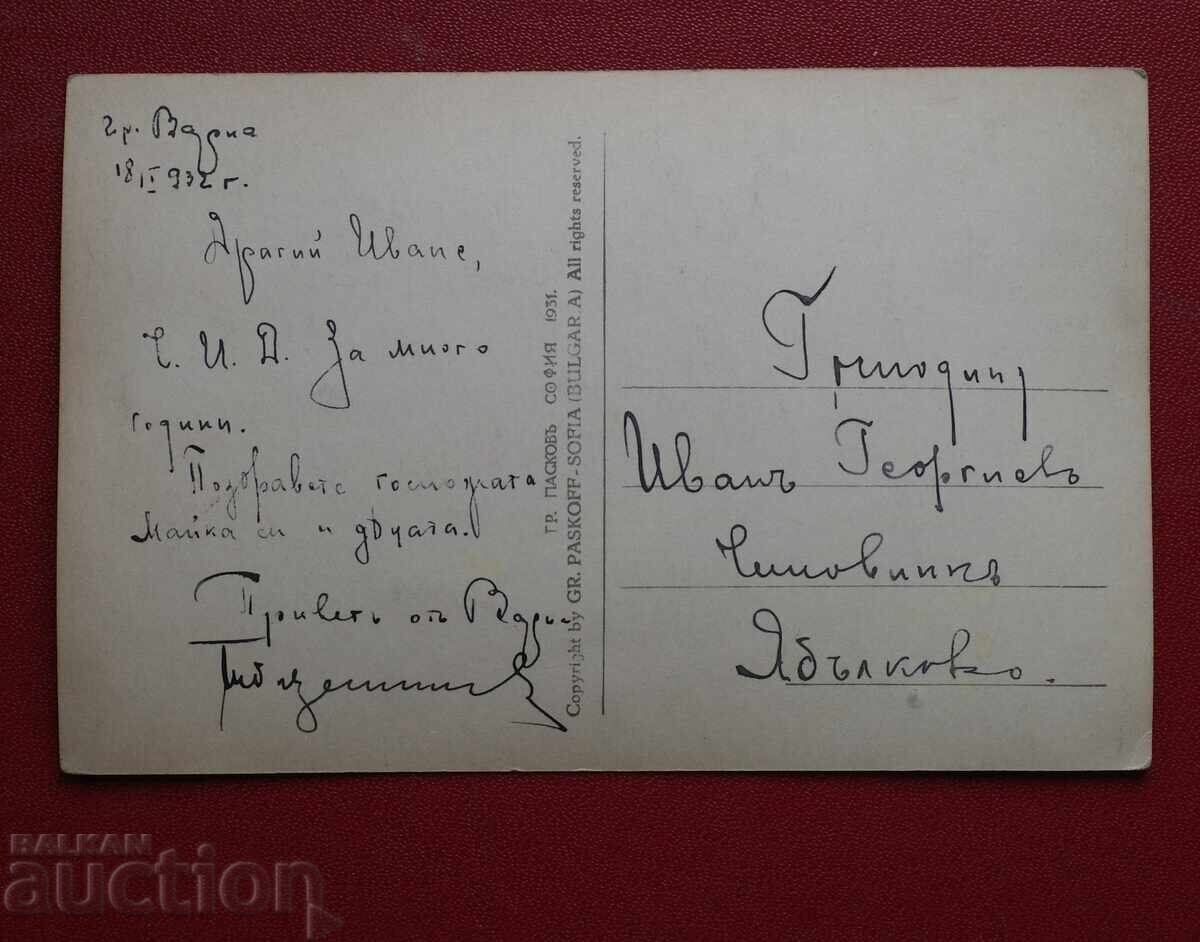 гр. Варна
18 II 932 г.
Драгий Иване,
Ч. И. Д. За много
години.
Поздравете госпожата
Майка си и дѣцата.
Приветъ отъ Варна
ГР. ПАСКОВЪ СОФИЯ 1931.
Copyright by GR. PASKOFF-SOFIA (BULGARIA) All rights reserved.
Господинъ
Иванъ Георгиевъ
Чиновникъ
Ябълково.
BALKAN
auction